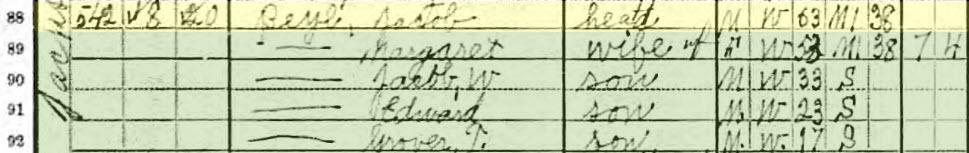 88 542 Beyl, Jacob head M W 63 M1 38
89 — Margaret wife F W M1 38 7 4
90 — Jacob, W son M W 33 S
91 — Edward son M W 23 S
92 — Grover, T. son M. W. 17 S